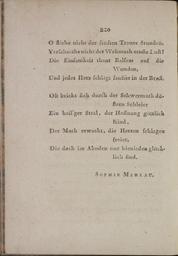 220
O fliehe nicht der sanften Trauer Stunden,
Verschmähe nicht der Wehmuth ernste Lust!
Die Einsamkeit thaut Balsam auf die
Wunden,
Und jedes Herz schlägt sanfter in der Brust.
Oft bricht sich durch der Schwermuth
Schleier
Ein heil'ger Stral, der Hoffnung göttlich
Kind,
Der Muth erwacht, die Herzen schlagen
freier,
Die doch im Abenden nur hienieden glück-
lich sind.
SOPHIE MEREAU.